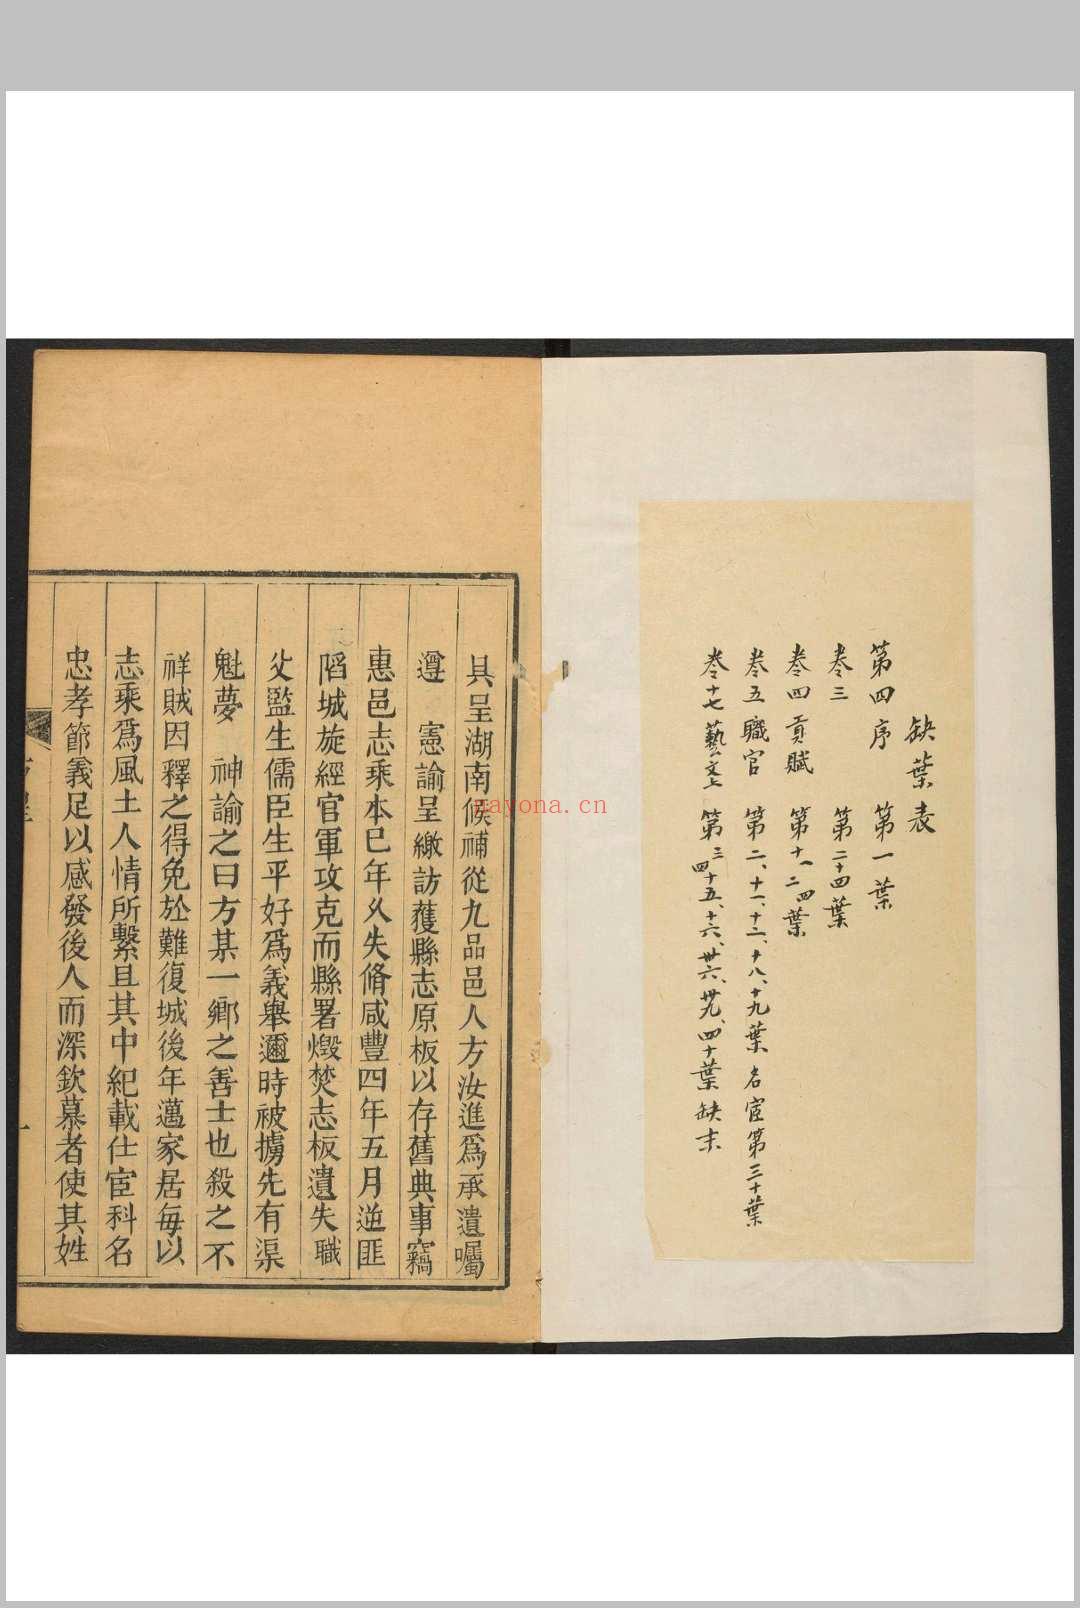 缺葉表
第四序　第一葉
卷三　第二十四葉
卷四貢賦　第十一、二四葉
卷五職官　第二、十一、十二、十八、十九葉名宦第三十葉
卷十七藝文上　第三、四十五、十六、卅六、卅九、四十葉缺末
具呈湖南候補從九品邑人方汝進爲承遺囑
遵　憲諭呈繳訪獲縣志原板以存舊典事竊
惠邑志乘本已年久失脩咸豐四年五月逆匪
陷城旋經官軍攻克而縣署燬焚志板遺失職
父監生儒臣生平好爲義舉邇時被擄先有渠
魁夢　神諭之曰方某一鄉之善士也殺之不
祥賊因釋之得免於難復城後年邁家居每以
志乘爲風土人情所繫且其中紀載仕宦科名
忠孝節義足以感發後人而深欽慕者使其姓
一
nayona.cn